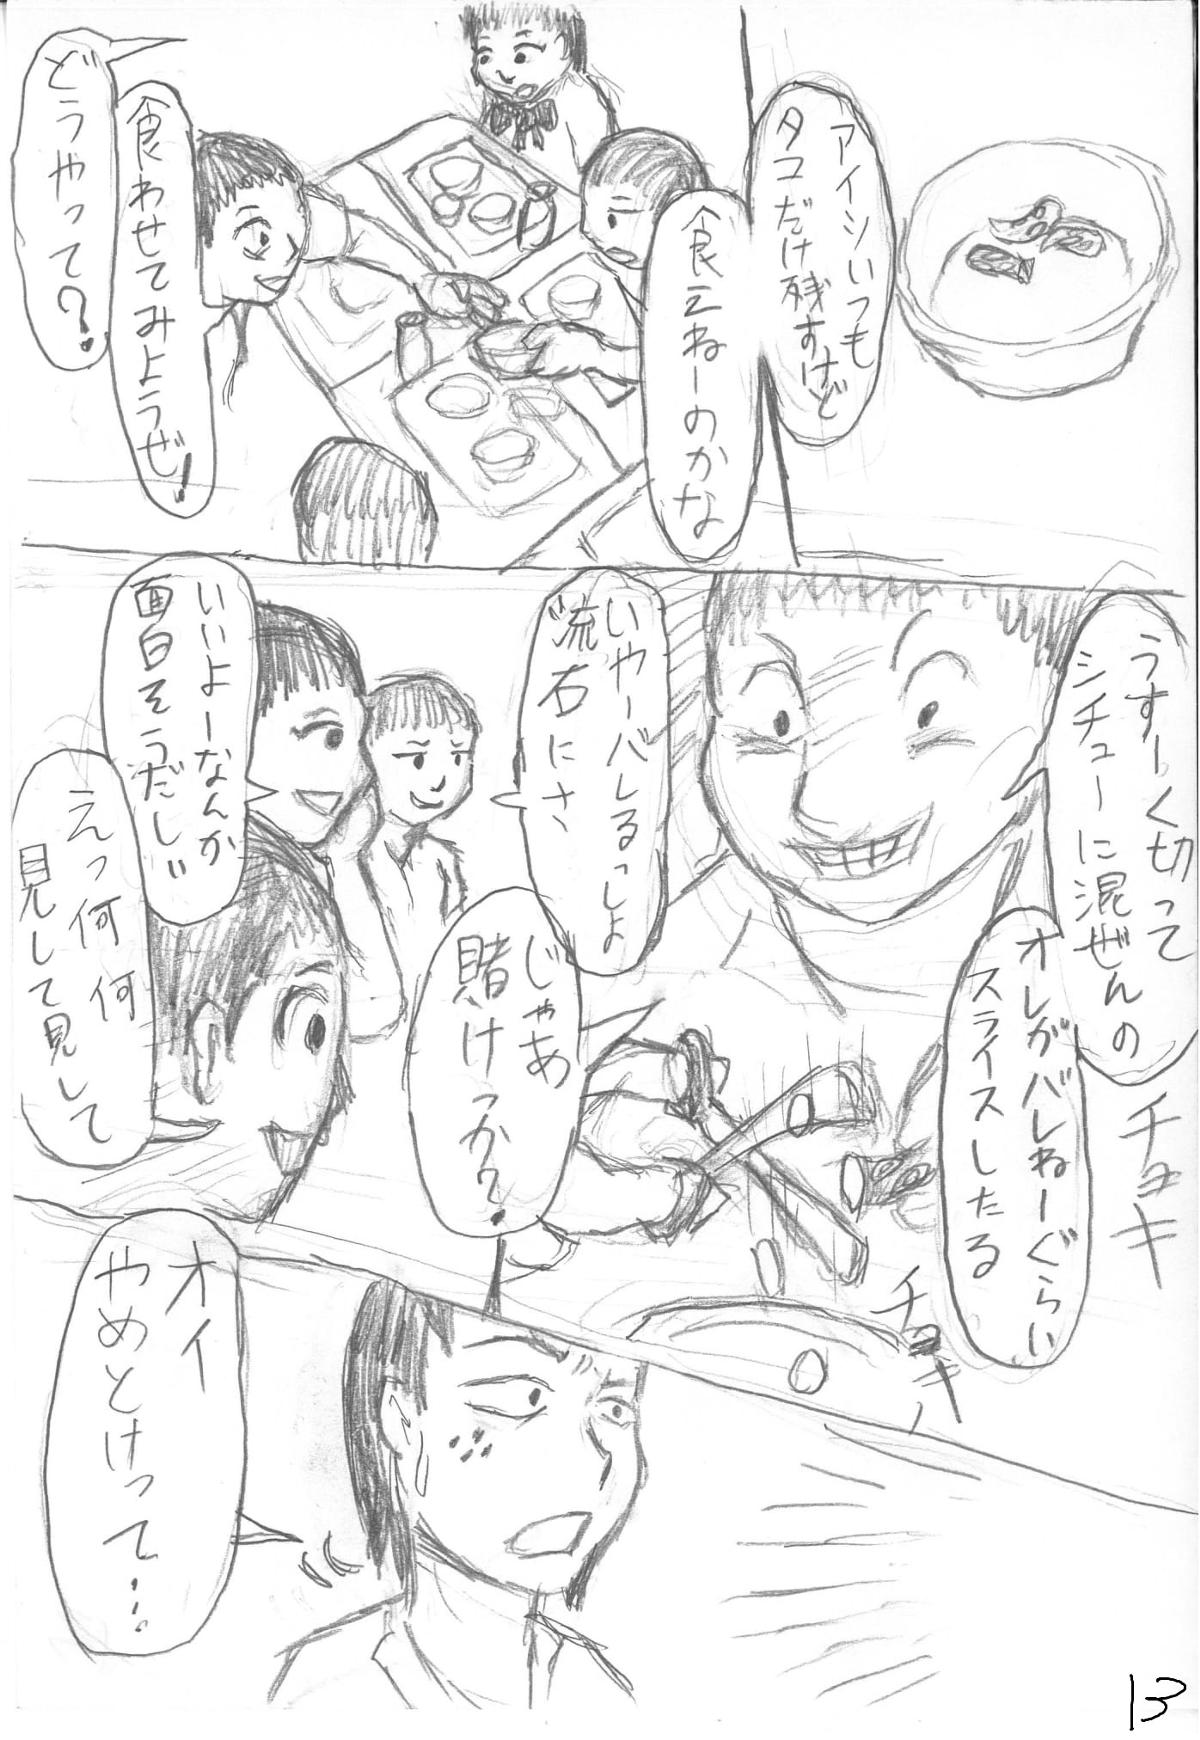 アイツいつも
タコだけ残すけど
食えねーのかな
食わせてみようぜ!
どうやって?
うすーく切って
シチューに混ぜんの
オレがバレねーぐらい
スライスしたる
チョキ
チョキ
いやーバレるっしょ
流石にさ
じゃあ
賭けっか?
いいよーなんか
面白そうだしい
えっ何何
見して見して
オイ
やめとけって…
13